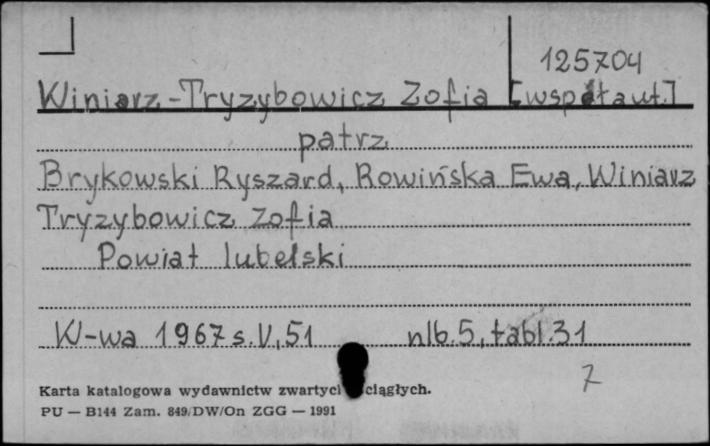 125704
Winiarz-Tryzybowicz Zofia [współaut.]
patrz
Brykowski Ryszard, Rowińska Ewa, Winiarz
Tryzybowicz Zofia
Powiat lubelski
W-wa 1967 s. V, 51 nlb. 5, tabl. 31
7
Karta katalogowa wydawnictw zwartych ciągłych.
PU — B144 Zam. 849/DW/On ZGG — 1991